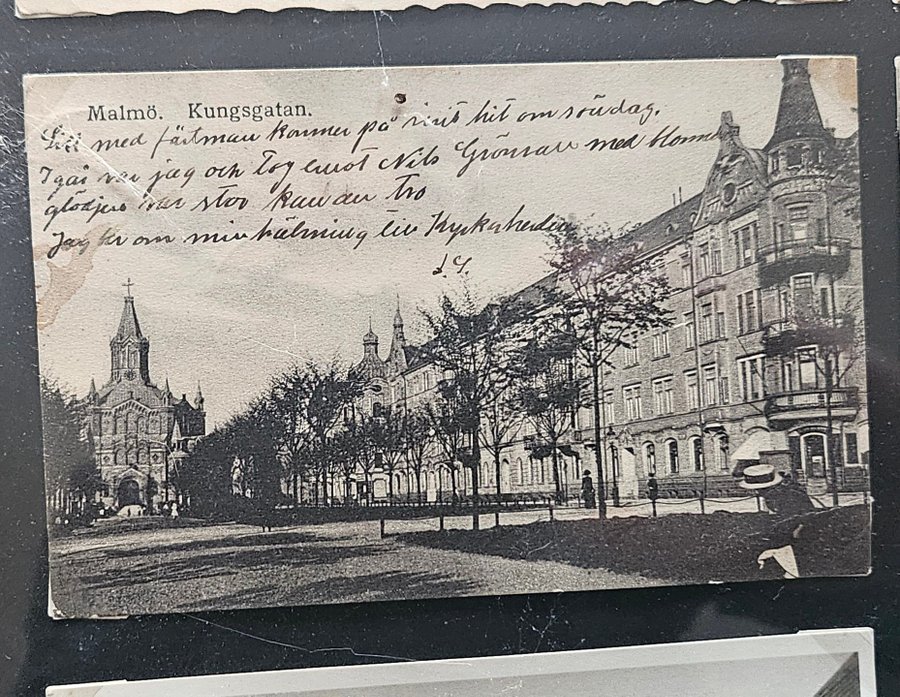 Malmö. Kungsgatan.
med färtman kommer på visit hit om söndag.
Igår var jag och tog emot Nils Grönvall med blommor
glädjen var stor kan du tro
Jag ber om min hälsning till Kyrkoherden